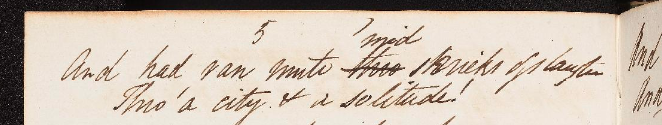 5
'mid
And had ran mute thro skrieks of slaughter
Thro' a city & a solitude!
And
And